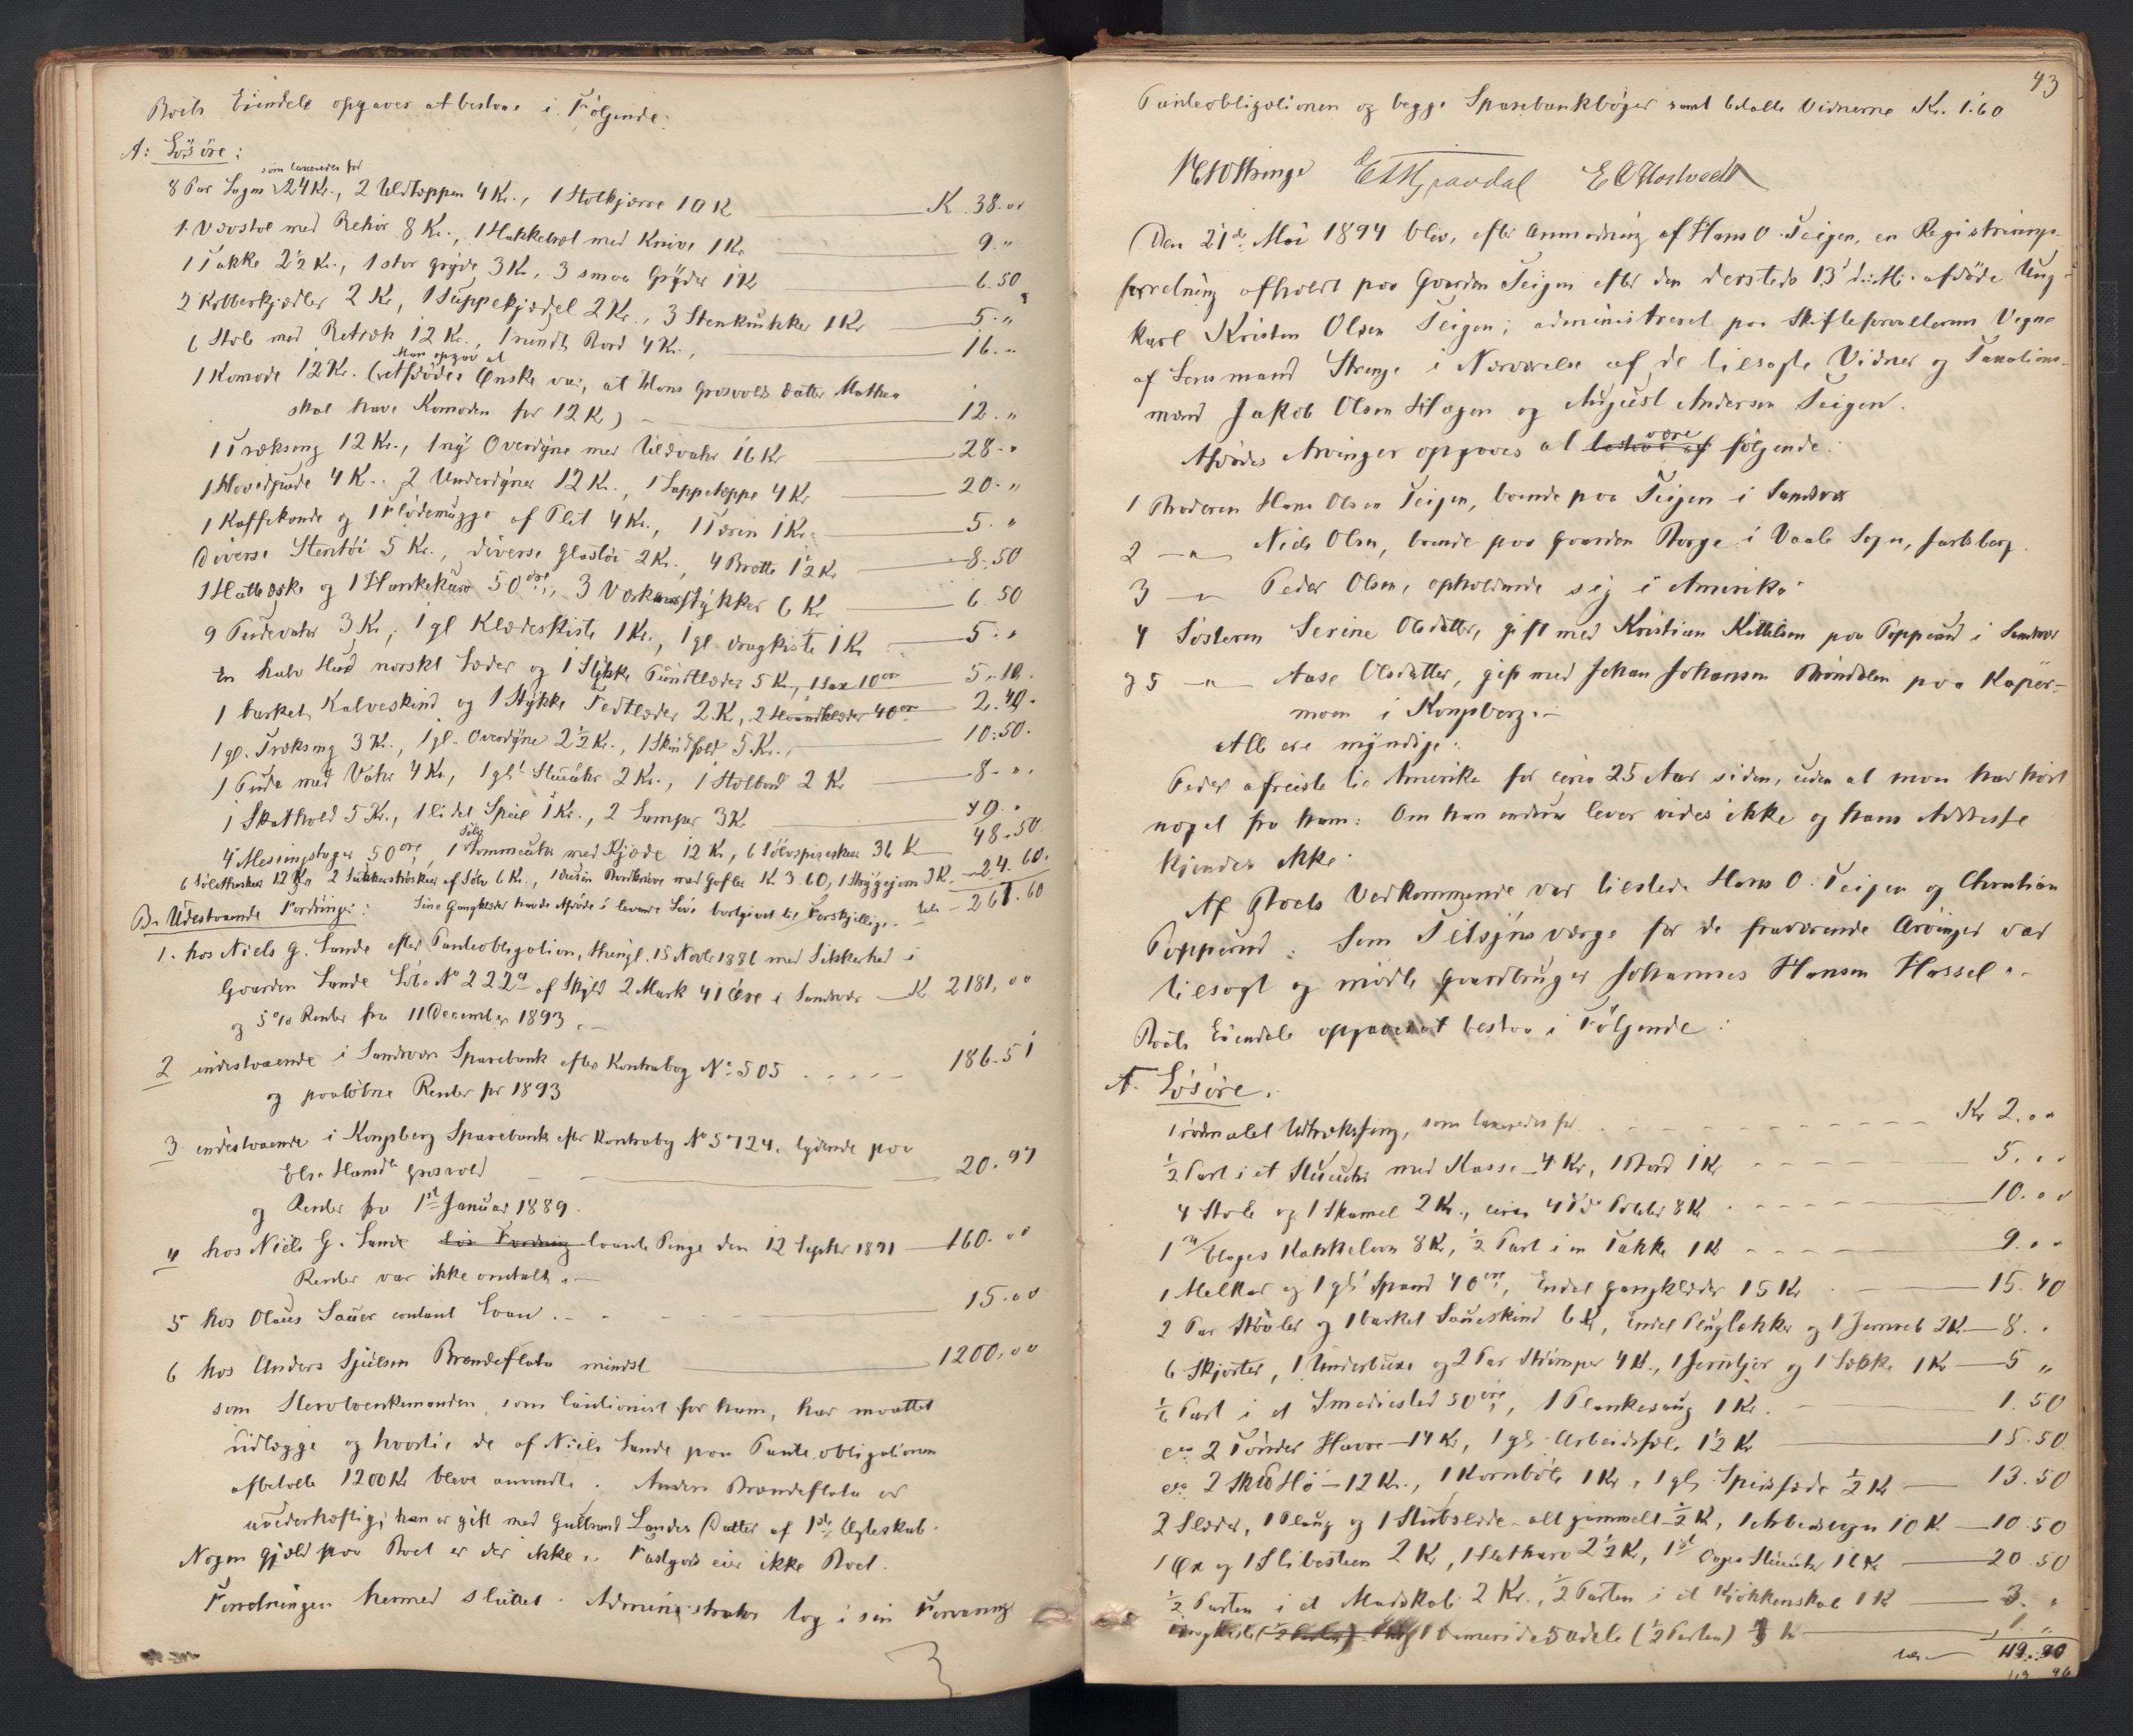 Boets Eiendele opgaves at bestaa i Følgende:
A: Løsøre:
som taxeredes for
8 Par Lagen 24 Kr., 2 Uldtæpper 4 Kr., 1 Stolkjærre 10 K K. 38.00
1 Vævstol med Behør 8 Kr., 1 Hakkebræt med Knive 1 Kr 9."
1 Takke 2½ Kr., 1 stor Gryde 3 Kr, 3 smaa Gryder 1 Kr 6.50
2 Kobberkjedler 2 Kr, 1 Suppekjedel 2 Kr., 3 Stenkrukker 1 Kr 5."
6 Stole med Betræk 12 Kr., 1 rundt Bord 4 Kr., 16."
Man opgav at
1 Komode 12 Kr. (Afdødes Ønske var, at Hans Grosvolds Datter Mathea
skal have Komoden for 12 Kr) 12."
1 Træksæng 12 Kr., 1 ny Overdyne med Uldvahr 16 Kr 28."
1 Hovedpude 4 Kr. 2 Underdyner 12 Kr., 1 Lappetæppe 4 Kr 20."
1 Kaffekande og 1 Flødemugge af Plet 4 Kr., 1 Terin 1 Kr. 5."
diverse Stentøi 5 Kr., diverse Glastøi 2 Kr., 4 Brætte 1½ Kr 8.50
1 Hatteæske og 1 Hankekurv 50 øre, 3 Værkenstykker 6 Kr 6.50
9 Pudevahr 3 Kr, 1 gl Klædeskiste 1 Kr., 1 gl. Dragkiste 1 Kr 5."
En halv Hud norskt Læder og 1 Stykke Pundlæder 5 Kr, 1 Sax 10 øre 5.10.
1 barket Kalveskind og 1 Stykke Fedtlæder 2 Kr, 2 Haandklæder 40 øre 2.40.
1 gl. Træksæng 3 Kr., 1 gl. Overdyne 2½ Kr., 1 Skindfeld 5 Kr. 10.50.
1 Pude med Vahr 4 Kr, 1 gl. Stueuhr 2 Kr., 1 Stolbord 2 K 8."
1 Skathold 5 Kr., 1 lidet Speil 1 Kr., 2 Lamper 3 Kr
4 Messingstager 50 øre, 1 Sølv Lommeuhr med Kjæde 12 Kr, 6 Sølvspiseskeer 36 K 48.50
6 Sølvtheskeer 12 Kr, 2 Sukkerskeer af Sølv 6 Kr., 1 Dusin Bordknive med Gafler Kr 3.60, 1 Strygejern 3 Kr. 24.60.
B. Udestaaende Fordringer: Sine Gangklæder havde Afdøde i levende Live bortgivet til Forskjellige. tils 261.60
1. hos Niels G. Sunde efter Panteobligation, thingl. 15 Novbr 1886 med Sikkerhed i
Gaarden Sunde Løbe No 222a af Skyld 2 Mark 41 Øre i Sandsvær K 2181,00
og 5% Renter fra 11 December 1893.
2 indestaaende i Sandsvær Sparebank efter Kontrabog No 505 186.51
og paaløbne Renter for 1893
3 indestaaende i Kongsberg Sparebank efter Kontrabog No 5724, lydende paa
Else Hansdtr Grosvold 20.97
og Renter fra 1st Januar 1889.
4 hos Niels G. Sunde laante Penge den 12 Septbr 1891 160.00
Renter var ikke omtalt.
5 hos Olaus Sauer contant Laan 15.00
6 hos Anders Sjulsen Brændeflata mindst 1200,00
som Stervboenkemanden, som Cautionist for ham, har maattet
udlægge og hvortil de af Niels Sunde paa Panteobligationen
afbetalte 1200 Kr bleve anvendte. Anders Brændeflata er
uvederhæftig; han er gift med Gulbrand Landes Datter af 1ste Ægteskab.
Nogen Gjæld paa Boet er der ikke. Fastgods eier ikke Boet.
Forretningen hermed sluttet. Administrator tog i sin Forvaring
43
Panteobligationen og begge Sparebankbøger samt betalte Vidnerne Kr. 1.60
Den 21de Mai 1894 blev, efter Anmodning af Hans O. Teigen, en Registrerings-
forretning afholdt paa Gaarden Teigen efter den dersteds 13de ds. Mt. afdøde Ung-
karl Kristen Olsen Teigen; administreret paa Skifteforvalterens Vegne
af Lensmand Strenge i Nærværelse af de tilsagte Vidner og Taxations-
mænd Jakob Olsen Hagen og August Andersen Teigen.
Afdødes Arvinger opgaves at være følgende:
1 Broderen Hans Olsen Teigen, boende paa Teigen i Sandsvær
2 —"— Niels Olsen, boende paa Gaarden Borge i Vaale Sogn, Jarlsberg.
3 —"— Peder Olsen, opholdende sig i Amerika
4 Søsteren Serine Olsdatter, gift med Kristian Kittilsen paa Popperud i Sandsvær
og 5 —"— Aase Olsdatter, gift med Johan Johansen Brændalen paa Kaper-
moen i Kongsberg.
Alle ere myndige.
Peder afreiste til Amerika for circa 25 Aar siden, uden at man har hørt
noget fra ham: Om han endnu lever vides ikke og hans Addresse
kjendes ikke.
Af Boets Vedkommende var tilstede Hans O. Teigen og Christian
Popperud. Som Tilsynsværge for de fraværende Arvinger var
tilsagt og mødte Gaardbruger Johannes Hansen Hassel.
Boets Eiendele opgaves at bestaa i Følgende:
A. Løsøre.
1 rødmalet Udtræksseng, som taxeredes for Kr 2.00
½ Part i et Stueuhr med Kasse 4 Kr, 1 Bord 1 Kr 5.00
4 Stole og 1 Skamel 2 Kr., circa 4 Tdr Poteter 8 Kr 10.00
1 Etages Kakkelovn 8 Kr, ½ Part i en Takke 1 Kr 9.00
1 Melkar og 1 gl. Spand 40 øre, Endel Gangklæder 15 Kr 15.40
2 Par Støvler og 1 barket Saueskind 6 Kr, Endel Pluglakker og 1 Jernreb 2 Kr 8."
6 Skjorter, 1 Underbuxe og 2 Par Strømper 4 Kr., 1 Jernstjør og 1 Sække 1 Kr 5 "
⅙ Part i et Smediested 50 øre, 1 Plankesaug 1 Kr. 1.50
ca. 2 Tønder Havre 14 Kr, 1 gl. Arbeidssele 1½ Kr 15.50
ca. 2 Skd Hø 12 Kr., 1 Kornbøle 1 Kr, 1 gl. Spidsslæde ½ Kr 13.50
2 Slæder, 1 Ploug og 1 Stubslæde alt gammelt ½ K, 1 Arbeidsvogn 10 K 10.50
1 Øx og 1 Slibesteen 2 Kr, 1 Sletharv 2½ Kr, Stueuhr 16 Kr 20.50
½ Parten i et Madskab 2 Kr., ½ Parten i et Kjøkkenskab 1 K 3."
(½ Parten) 1 Kr 1."